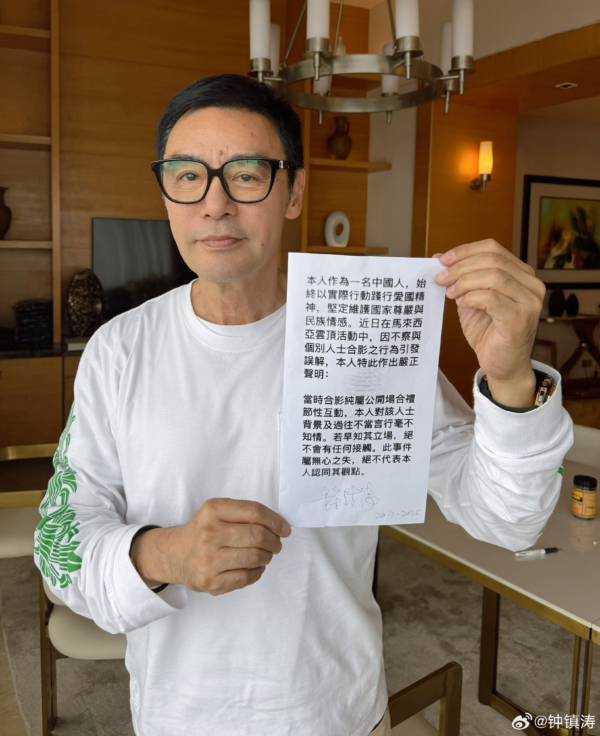 本人作為一名中國人，始
終以實際行動踐行愛國精
神，堅定維護國家尊嚴與
民族情感。近日在馬來西
亞雲頂活動中，因不察與
個別人士合影之行為引發
誤解，本人特此作出嚴正
聲明：
當時合影純屬公開場合禮
節性互動，本人對該人士
背景及過往不當言行毫不
知情。若早知其立場，絕
不會有任何接觸。此事件
屬無心之失，絕不代表本
人認同其觀點。
@钟镇涛